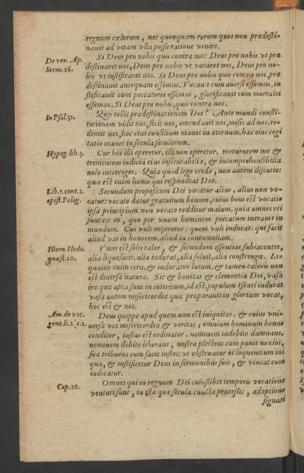 regnum cælorum, nec quenquam eorum quos non prædesti-
nauit ad vitam vlla posse ratione venire.
De ver. Ap.
Serm. 16.
Si Deus pro nobis quis contra nos: Deus pro nobis vt præ
destinaret nos, Deus pro nobis vt vocaret nos, Deus pro no-
bis vt iustificaret nos. Si Deus pro nobis quis contra nos, præ
destinauit antequam essemus, Vocauit cum auersi essemus, iu
stificauit cum peccatores essemus, glorificauit cum mortales
essemus. Si Deus pro nobis, quis contra nos.
In Psal. 32.
Quis tollit prædestinationem Dei? Ante mundi consti-
tutionem vidit nos, fecit nos, emendauit nos, misit ad nos, re-
demit nos, hoc eius consilium manet in æternum, hæc eius cogi
tatio manet in secula seculorum.
Hypog. lib. 3.
Cur hic illi operetur, illi non operetur, metuentem me &
trementem iudicia eius inscrutabilia, & incomprehensibilia
nolo interroges. Quia quod lego credo, non autem discutio:
quis est enim homo qui respondeat Deo.
Lib. 2. cont. 2.
epist. Pelag.
Secundum propositum Dei vocatur alius, alius non vo-
catur: vocato datur gratuitum bonum, cuius boni est vocatio
ipsa principium: non vocato redditur malum, quia omnes rei
sunt ex eo, quo per vnum hominem peccatum intrauit in
mundum. Cui vult miseretur: quem vult indurat: qui facit
aliud vas in honorem, aliud in contumeliam.
quæst. 10.
Vnus est solis calor, & secundum essentias subiacentes,
alia liquefacit, alia indurat, alia soluit, alia constringit. Li-
quatur enim cera, & induratur lutum, & tamen caloris non
est diuersa natura. Sic & bonitas & clementia Dei, vasa
iræ quæ apta sunt in interitum, id est, populum Israel indurat
vasa autem misericordiæ quæ præparauit in gloriam vocat,
hoc est & nos.
Deus quippe apud quem non est iniquitas, & cuius vni-
uersæ viæ misericordia & veritas, omnium hominum bonus
conditor, iustus est ordinator, neminem indebite damnans,
neminem debite liberans, nostra plectens cum punit noxios,
sua tribuens cum facit iustos: vt obstruatur os loquentium ini
qua, & iustificetur Deus in sermonibus suis, & vincat cum
iudicatur.
Cap. 10.
Omnes qui in regnum Dei cuiuslibet temporis vocatione
venturi sunt, in ista quæ secula cuncta præcessit, adoptione
signati